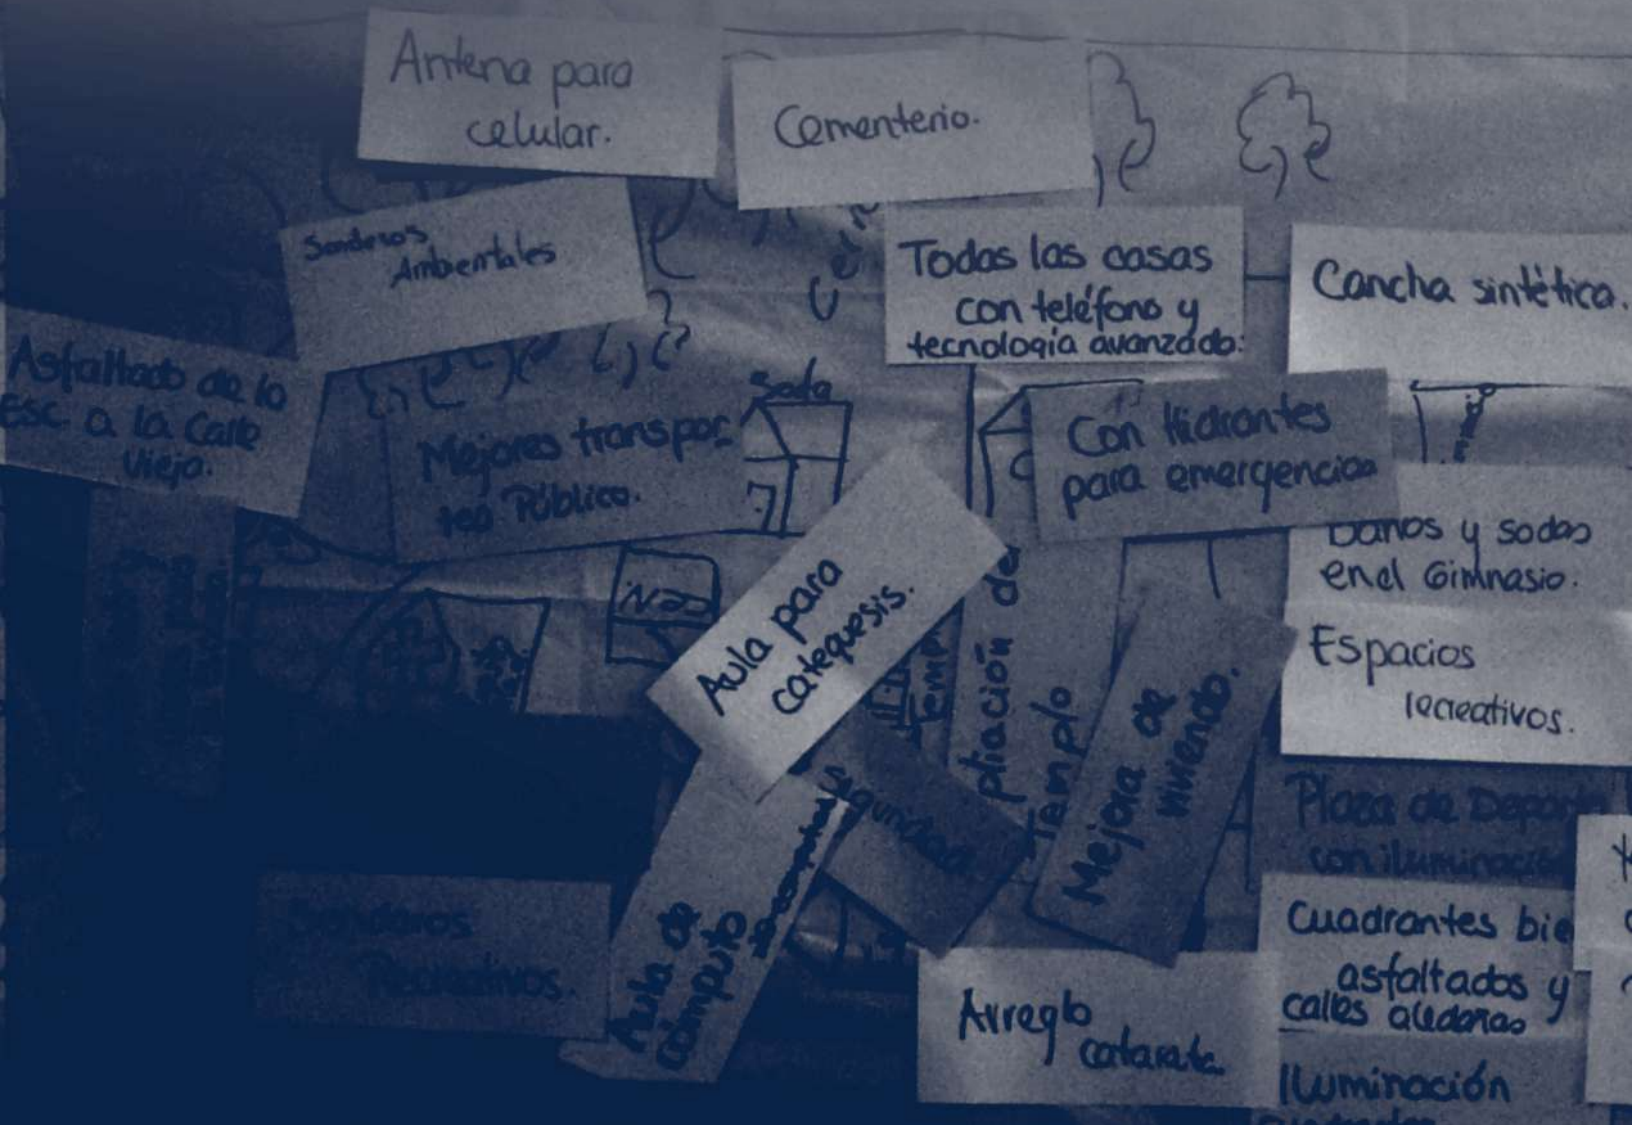 Antena para
celular.
Cementerio.
Senderos
Ambientales
Todas las casas
con teléfono y
tecnología avanzada.
Cancha sintética.
Asfaltado de la
Esc. a la Calle
Vieja.
Mejores transpor
tes Público.
Soda
Con Hidrantes
para emergencias
Baños y sodas
en el Gimnasio.
CEN
Aula para
catequesis.
pliación del
Templo
Mejora de
vivienda.
Espacios
recreativos.
Seguridad
Plaza de Deport
con iluminación
Senderos
Recreativos.
Aula de
cómputo
Arreglo
catarata.
Cuadrantes bie
asfaltados y
calles aledañas
Iluminación